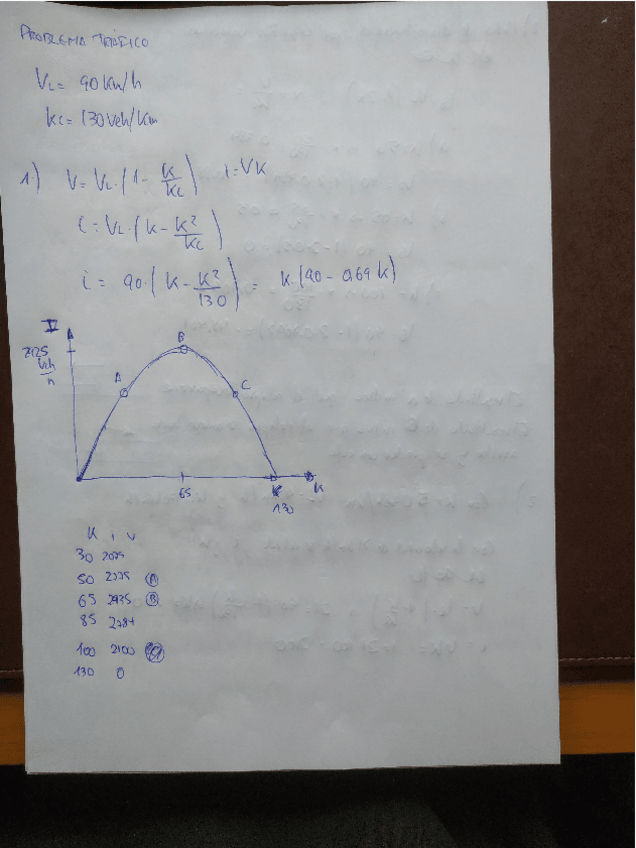 PROBLEMA TRÁFICO
VL= 90 Km/h
kc= 130 veh/Km
1.) V= VL·(1- K/KC) i=VK
i= VL·(K- K²/KC)
i= 90·(K- K²/130) = K·(90- 0,69 K)
2925
veh/h
B
A
C
65
130
K
K i V
30 2075
50 2775 (A)
65 2925 (B)
85
100 2100
130 0